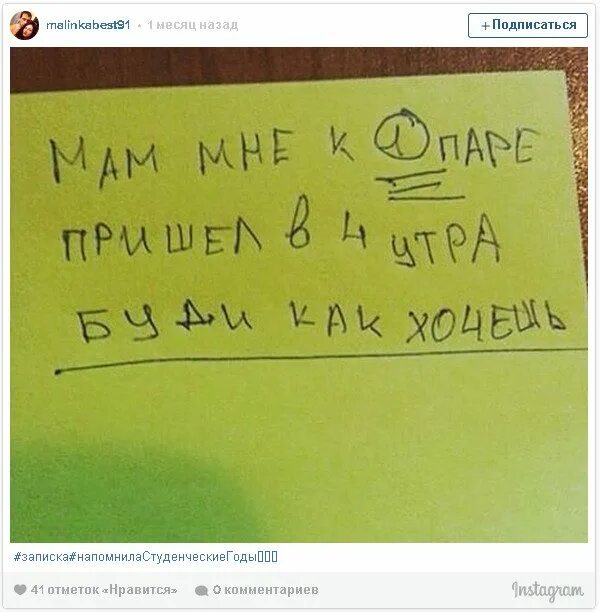 malinkabest91 • 1 месяц назад
+Подписаться
МАМ МНЕ К 1 ПАРЕ
ПРИШЕЛ В 4 УТРА
БУДИ КАК ХОЧЕШЬ
#записка#напомнилаСтуденческиеГоды
41 отметок «Нравится»
0 комментариев
Instagram